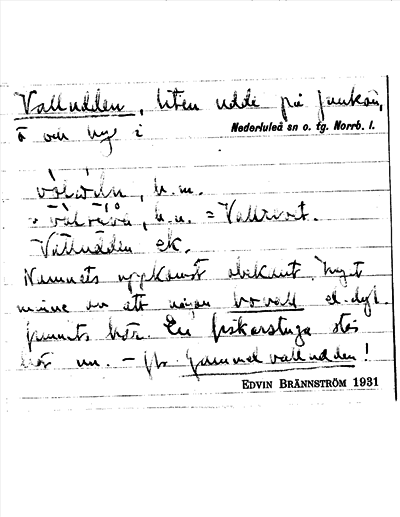 Valludden, liten udde på Junkön,
ö och hg i
Nederluleå sn o. tg. Norrb. l.
h. m.
h. u. = Vallrevet.
Valludden ek.
Namnets uppkomst obekant. Inget
minne av att någon bovall el. dyl.
funnits här. En fiskarstuga står
här nu. – Jfr Gammelvalludden!
EDVIN BRÄNNSTRÖM 1931